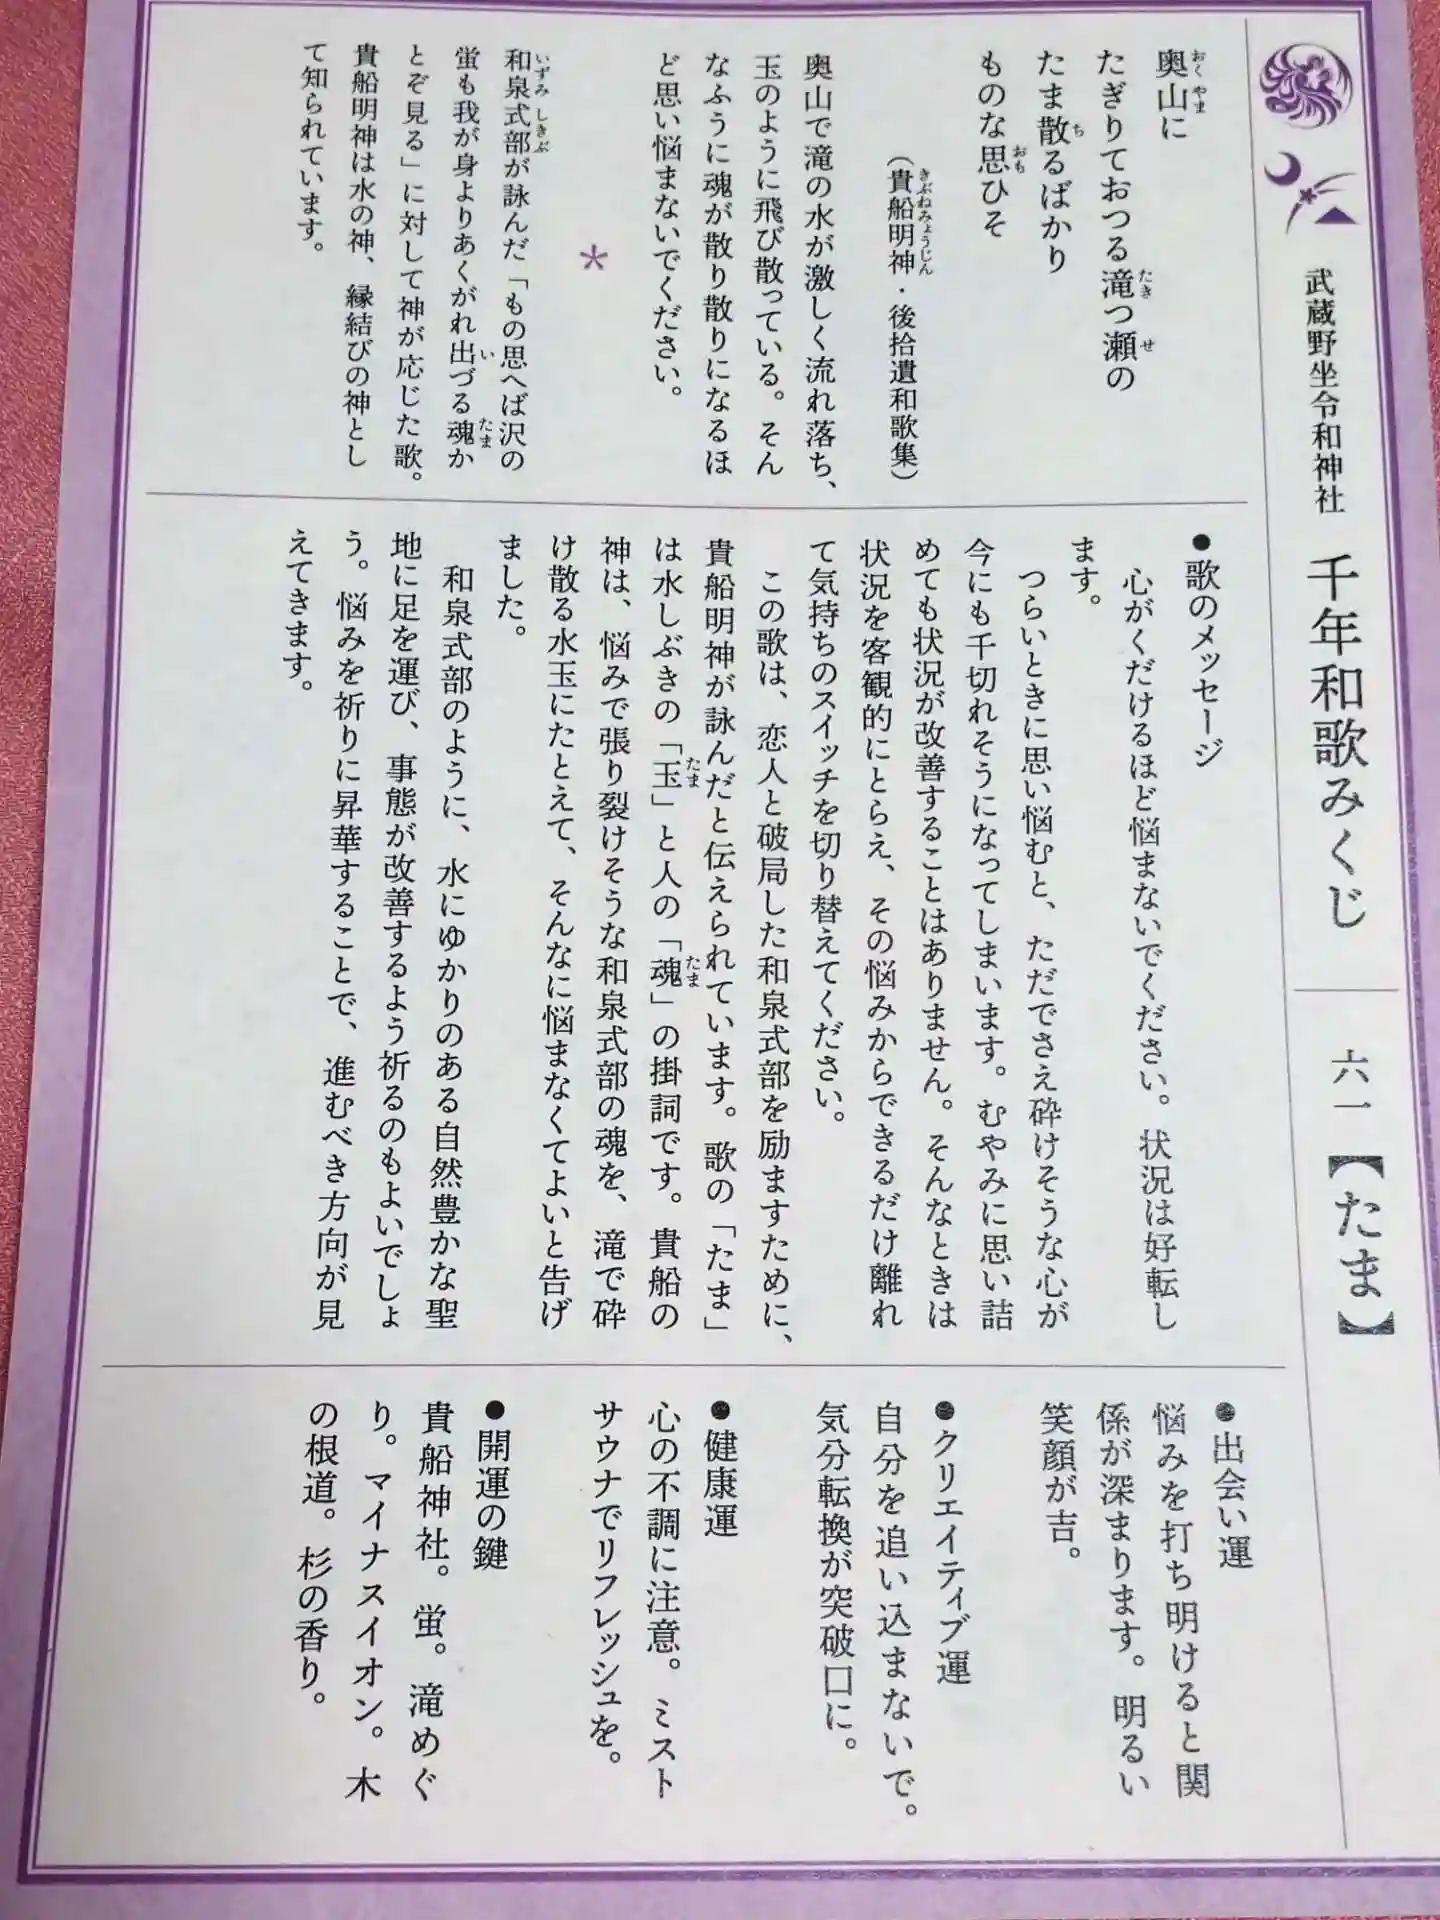 武蔵野坐令和神社　千年和歌みくじ　六一【たま】
奥山に
たぎりておつる滝つ瀬の
たま散るばかり
ものな思ひそ
（貴船明神・後拾遺和歌集）
奥山で滝の水が激しく流れ落ち、
玉のように飛び散っている。そん
なふうに魂が散り散りになるほ
ど思い悩まないでください。
＊
和泉式部が詠んだ「もの思へば沢の
蛍も我が身よりあくがれ出づる魂か
とぞ見る」に対して神が応じた歌。
貴船明神は水の神、縁結びの神とし
て知られています。
●歌のメッセージ
　心がくだけるほど悩まないでください。状況は好転し
ます。
　つらいときに思い悩むと、ただでさえ砕けそうな心が
今にも千切れそうになってしまいます。むやみに思い詰
めても状況が改善することはありません。そんなときは
状況を客観的にとらえ、その悩みからできるだけ離れ
て気持ちのスイッチを切り替えてください。
　この歌は、恋人と破局した和泉式部を励ますために、
貴船明神が詠んだと伝えられています。歌の「たま」
は水しぶきの「玉」と人の「魂」の掛詞です。貴船の
神は、悩みで張り裂けそうな和泉式部の魂を、滝で砕
け散る水玉にたとえて、そんなに悩まなくてよいと告げ
ました。
　和泉式部のように、水にゆかりのある自然豊かな聖
地に足を運び、事態が改善するよう祈るのもよいでしょ
う。悩みを祈りに昇華することで、進むべき方向が見
えてきます。
●出会い運
悩みを打ち明けると関
係が深まります。明るい
笑顔が吉。
●クリエイティブ運
自分を追い込まないで。
気分転換が突破口に。
●健康運
心の不調に注意。ミスト
サウナでリフレッシュを。
●開運の鍵
貴船神社。蛍。滝めぐ
り。マイナスイオン。木
の根道。杉の香り。